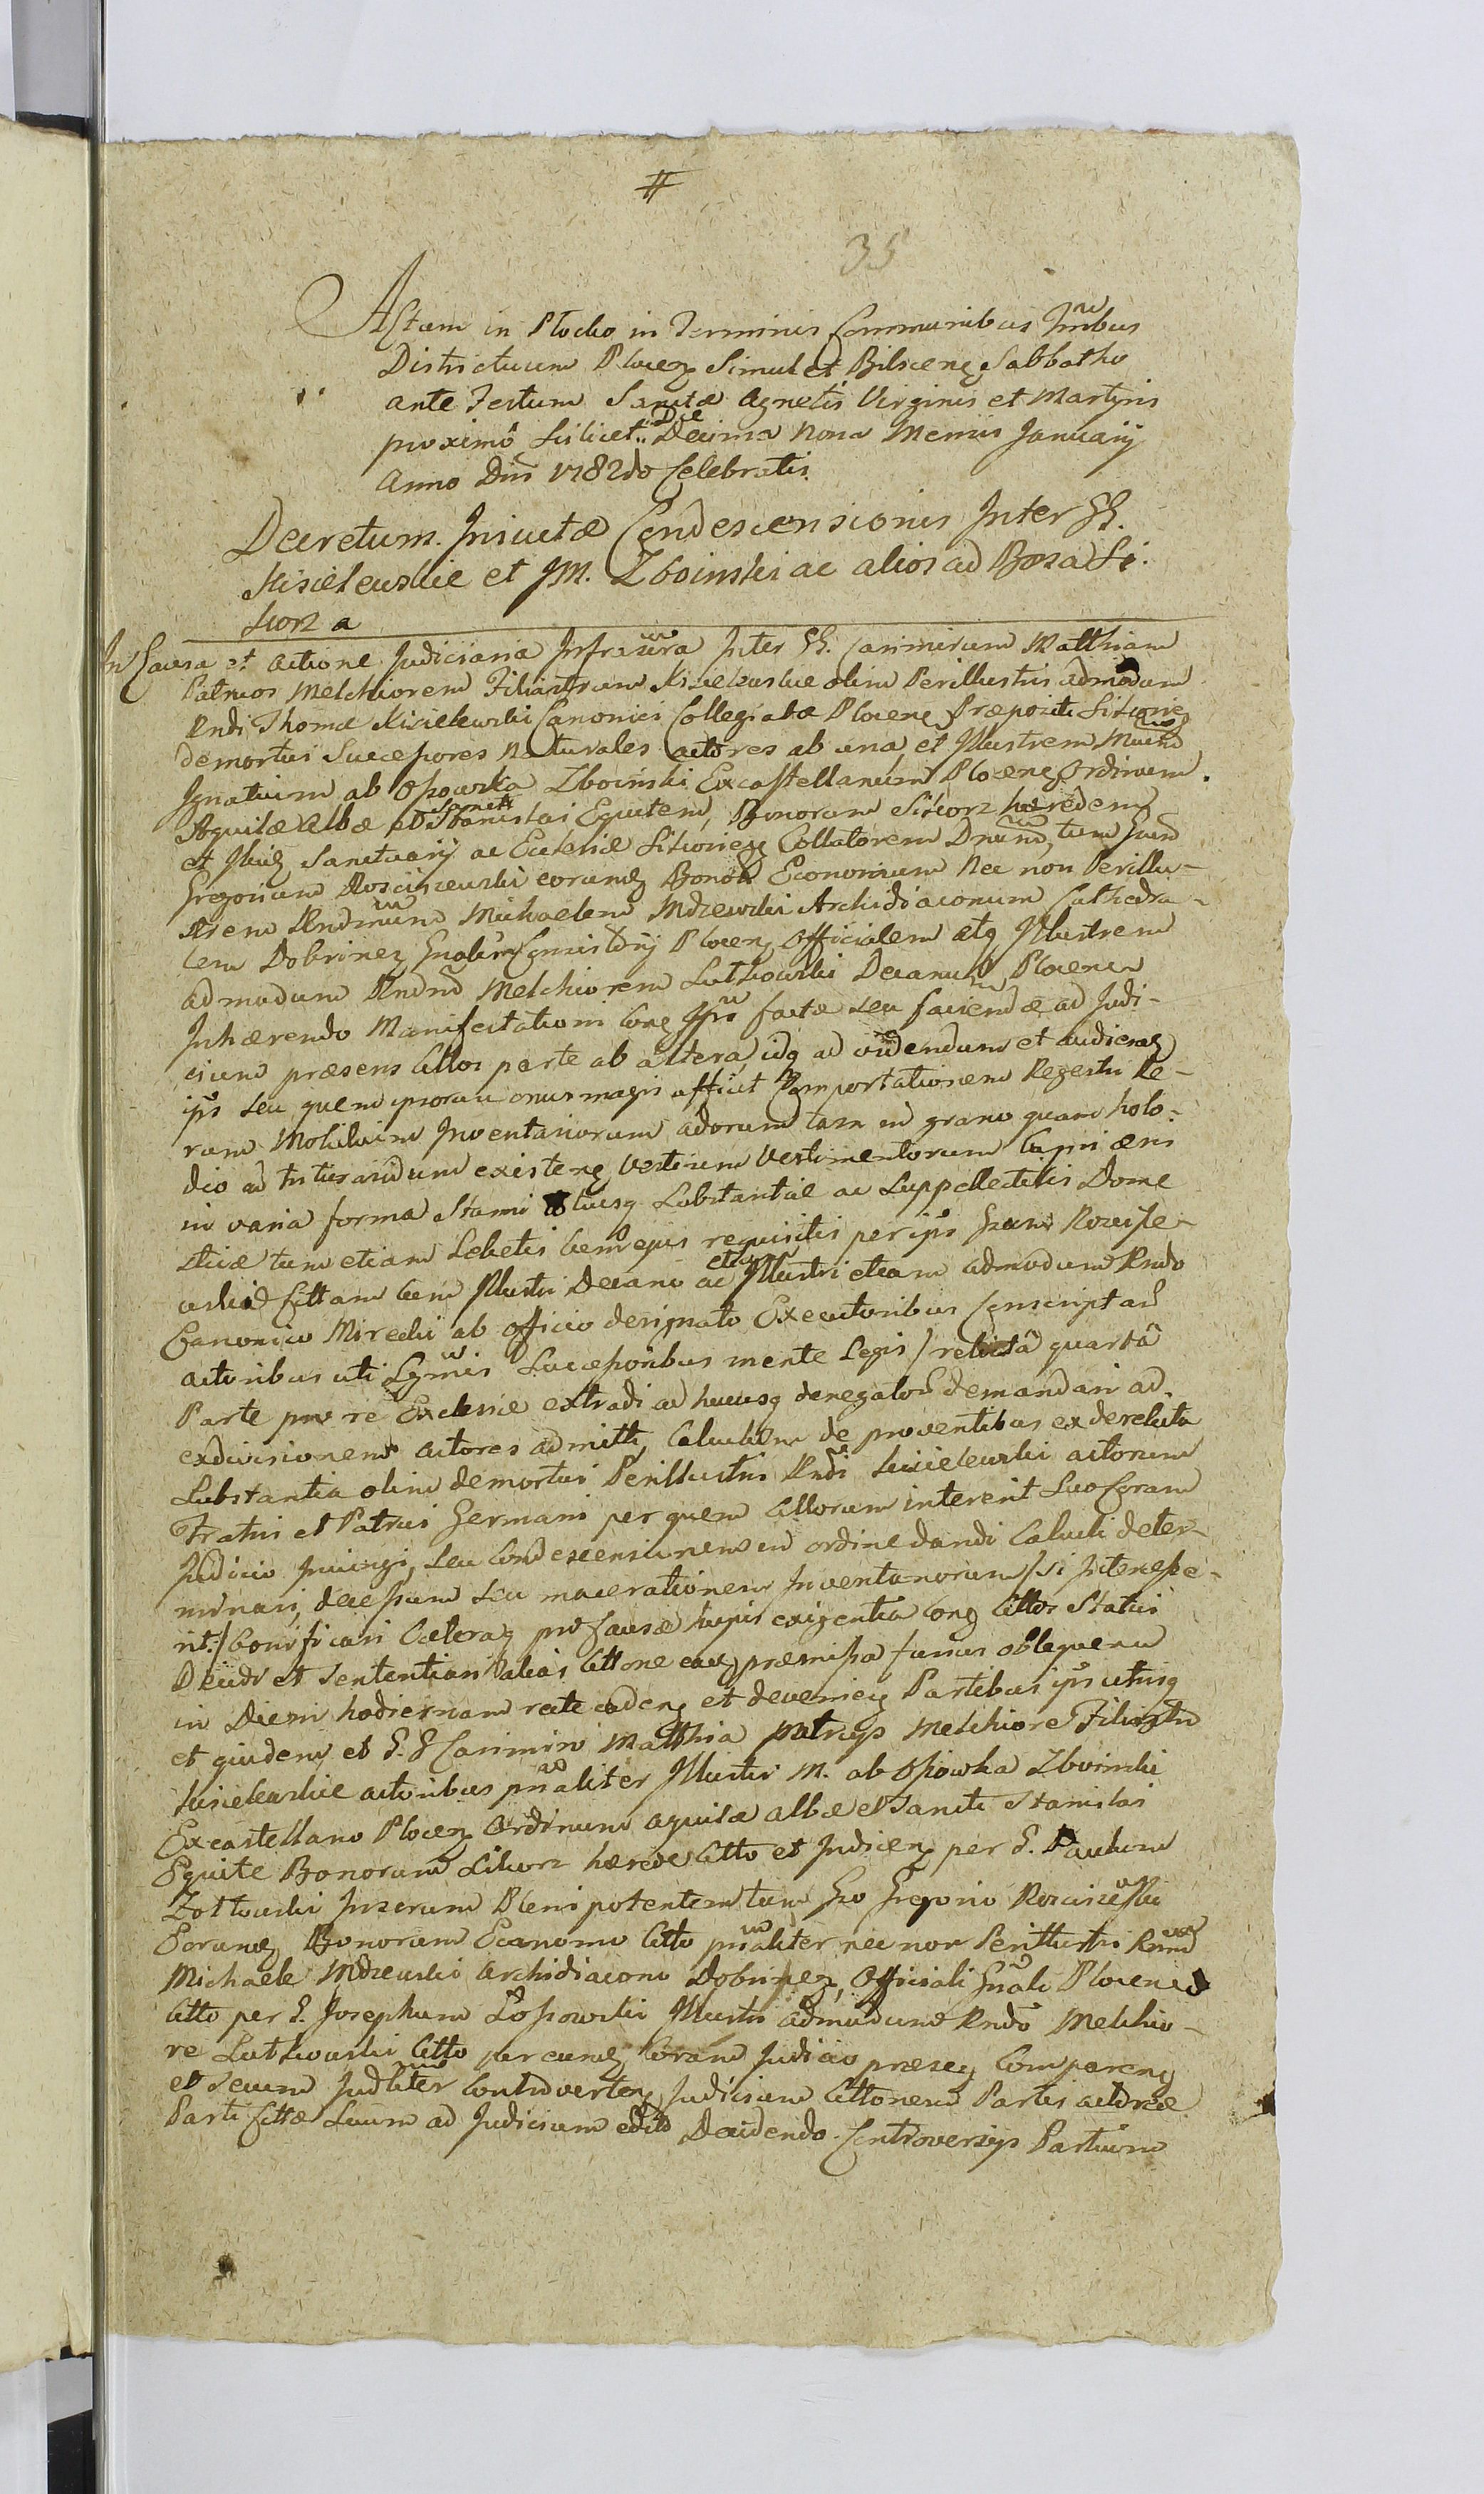 #
35
Actum in Plocko in Terminis Communibus Trribus
Districtuum Plocen Simul et Bilscen Sabbatho
ante Festum Sanctæ Agnetis Virginis et Martyris
proximô scilicet Die Decima Nona Mensis January
Anno Dni 1782do Celebratis.
Decretum. Iniunctæ Condescensionis Inter GG.
Kisielewskie et JM. Zboinski ac alios ad Bona Si-
korz a
In Causa et Actione Judiciaria Infrascra Inter GG. Casimirum Matthiam
Patruos Melchiorem Filiastrum Kisielewskie olim Perillustris admodum
Rndi Thomæ Kisielewski Canonici Collegiatæ Plocen Præpositi Sikorien
demortui Successores Naturales Actores ab una et Illustrem Mcum
Ignatium ab Ossowka Zboinski Excastellanum Plocen Ordinum
Aquilæ Albæ et Sancti Stanislai Equitem, Bonorum Sikorz hæredem
et Illius Sanctuarij ac Ecclesiæ Sikorien Collatorem Dnum, tum Gsum
Gregorium Rosciszewski eorund Bonor Economum Nec non Perillu-
strem Rndmum Michaelem Mdzewski Archidiaconum Cathedra-
lem Dobrinen Gnalem Consistorij Plocen Officialem atq Illustrem
admodum Rndum Melchiorem Lutkowski Decanum Plocenen
Inhærendo Manifestationi Cong Ipsos factæ seu faciendæ ad Judi-
cium præsens Cittos parte ab altera, idq ad videndum et audiend
ipsos seu quem ipsorum onus magis afficit Comportationem Regestri Re-
rum Mobilium Inventariorum adorum tam in grano quam holo-
dio ad triturandum existen Vestium Vestimentorum Cupri æris
in varia forma Stanni aliusq Substantiæ ac Suppellectilis Dome
sticæ tum etiam Lebetis Cum ejus requisitis per ipsos Gsum Roscisze-
wski Cittam Cum Illustri Decano ac etiam Illustri etiam admodum Rndo
Canonico Mirecki ab officio designato Executoribus Conscriptar
Actoribus uti Lgmis Successoribus mente Legis / relictâ quartâ
Parte pro re Ecclesiæ extradi ad hucusq denegator demandari ad
exdivisionem Actores admitti, Calculum de proventibus ex derelicta
Substantia olim demortui Perillustris Rndi Kisielewski Actorum
Fratris et Patrui Germani per quem Cittorum intererit Suo Coram
Judicio Iniungi, seu Condescensionem in ordine dandi Calculi deter-
minari, decessum seu macerationem Inventariorum / si Intercesse-
rit / bonificari Ceteraq pro Causæ hujus exigentia Cong Cittos Statui
Decidi et Sententiari alias Cittone ead præmissa fusius obloquen
in Diem hodiernam recte caden et devenien Partibus ipsis utrisq
et quidem et G.G Casimiro Matthia patruys Melchiore Filiastro
Kisielewskie Actoribus prnaliter Illustri M. ab Ossowka Zboinski
Excastellano Plocen Ordinum Aquilæ Albæ et Sancti Stanislai
Equite Bonorum Sikorz hærede Citto et Indicen per G. Paulum
Zottowski Juserum Plenipotentem tum Gso Gregorio Rosciszewski
Eorund Bonorum Economo Citto prnaliter nec non Perillustri Rndmo
Michaele Mdzewski Archidiacono Dobrinen, Officiali Gnali Plocenen
Citto per G. Josephum Lossowski Illustri admodum Rndo Melchio-
re Lutkowski Citto per eund Coram Judicio præsen Comparen
et secum Judliter Controverten Judicium Cittonem Partis Actoreæ
Parti Cittæ Suum ad Judicium edito Decidendo Controversijs Partium